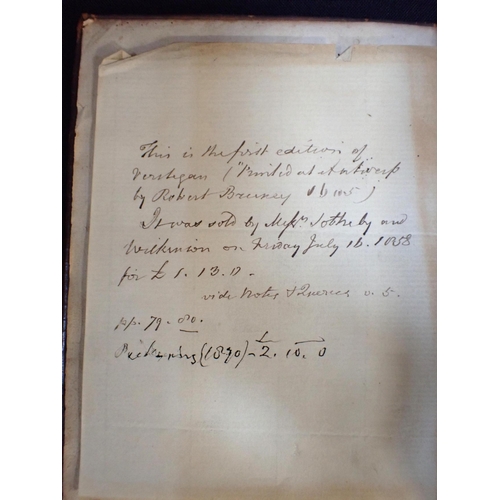 This is the first edition of
Verstegan ("Printed at Antwerp
by Robert Bruney 1605)
It was sold by Messrs Sotheby and
Wilkinson on Friday July 16. 1858
for £ 1. 13. 0 -
vide Notes & Queries v. 5.
pp. 79. 80.
(1890) - £2. 10. 0